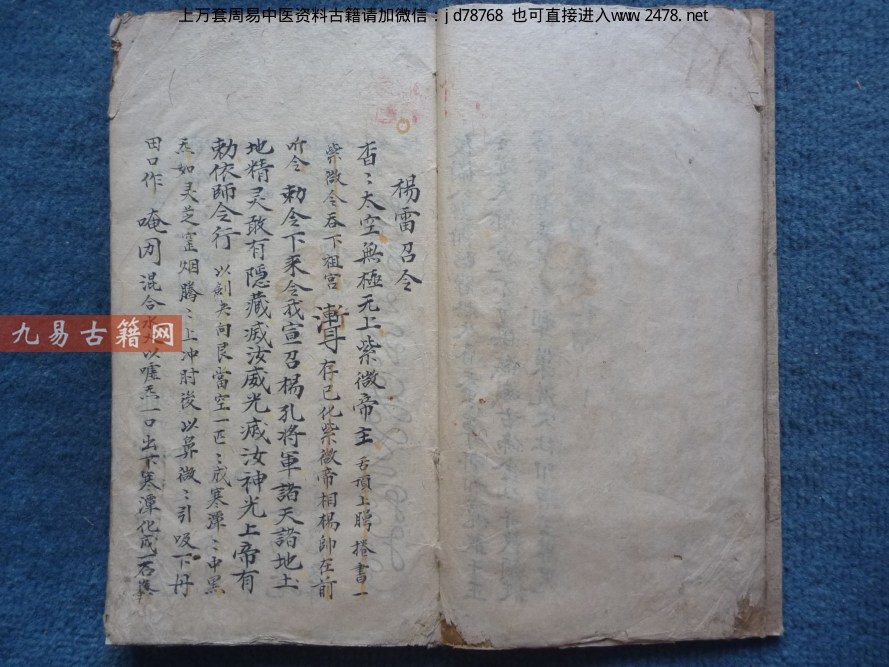 上万套周易中医资料古籍请加微信：jd78768 也可直接进入www.2478.net
楊雷召令
杳〻太空無極元上紫微帝主 舌頂上腭捲書一
紫微令吞下祖宮 存已化紫微帝相楊帥在前
听令 勅令下來令我宣召楊孔將軍諸天諸地土
地精灵敢有隱藏滅汝威光滅汝神光上帝有
勅依師令行 以剑夬向艮當空一匝〻成寒潭〻中黑
炁如灵芝窑烟騰〻上冲肘後以鼻微〻引吸下丹
田口作 唵 混合 以嘘炁一口出下寒潭化成一石
九易古籍网